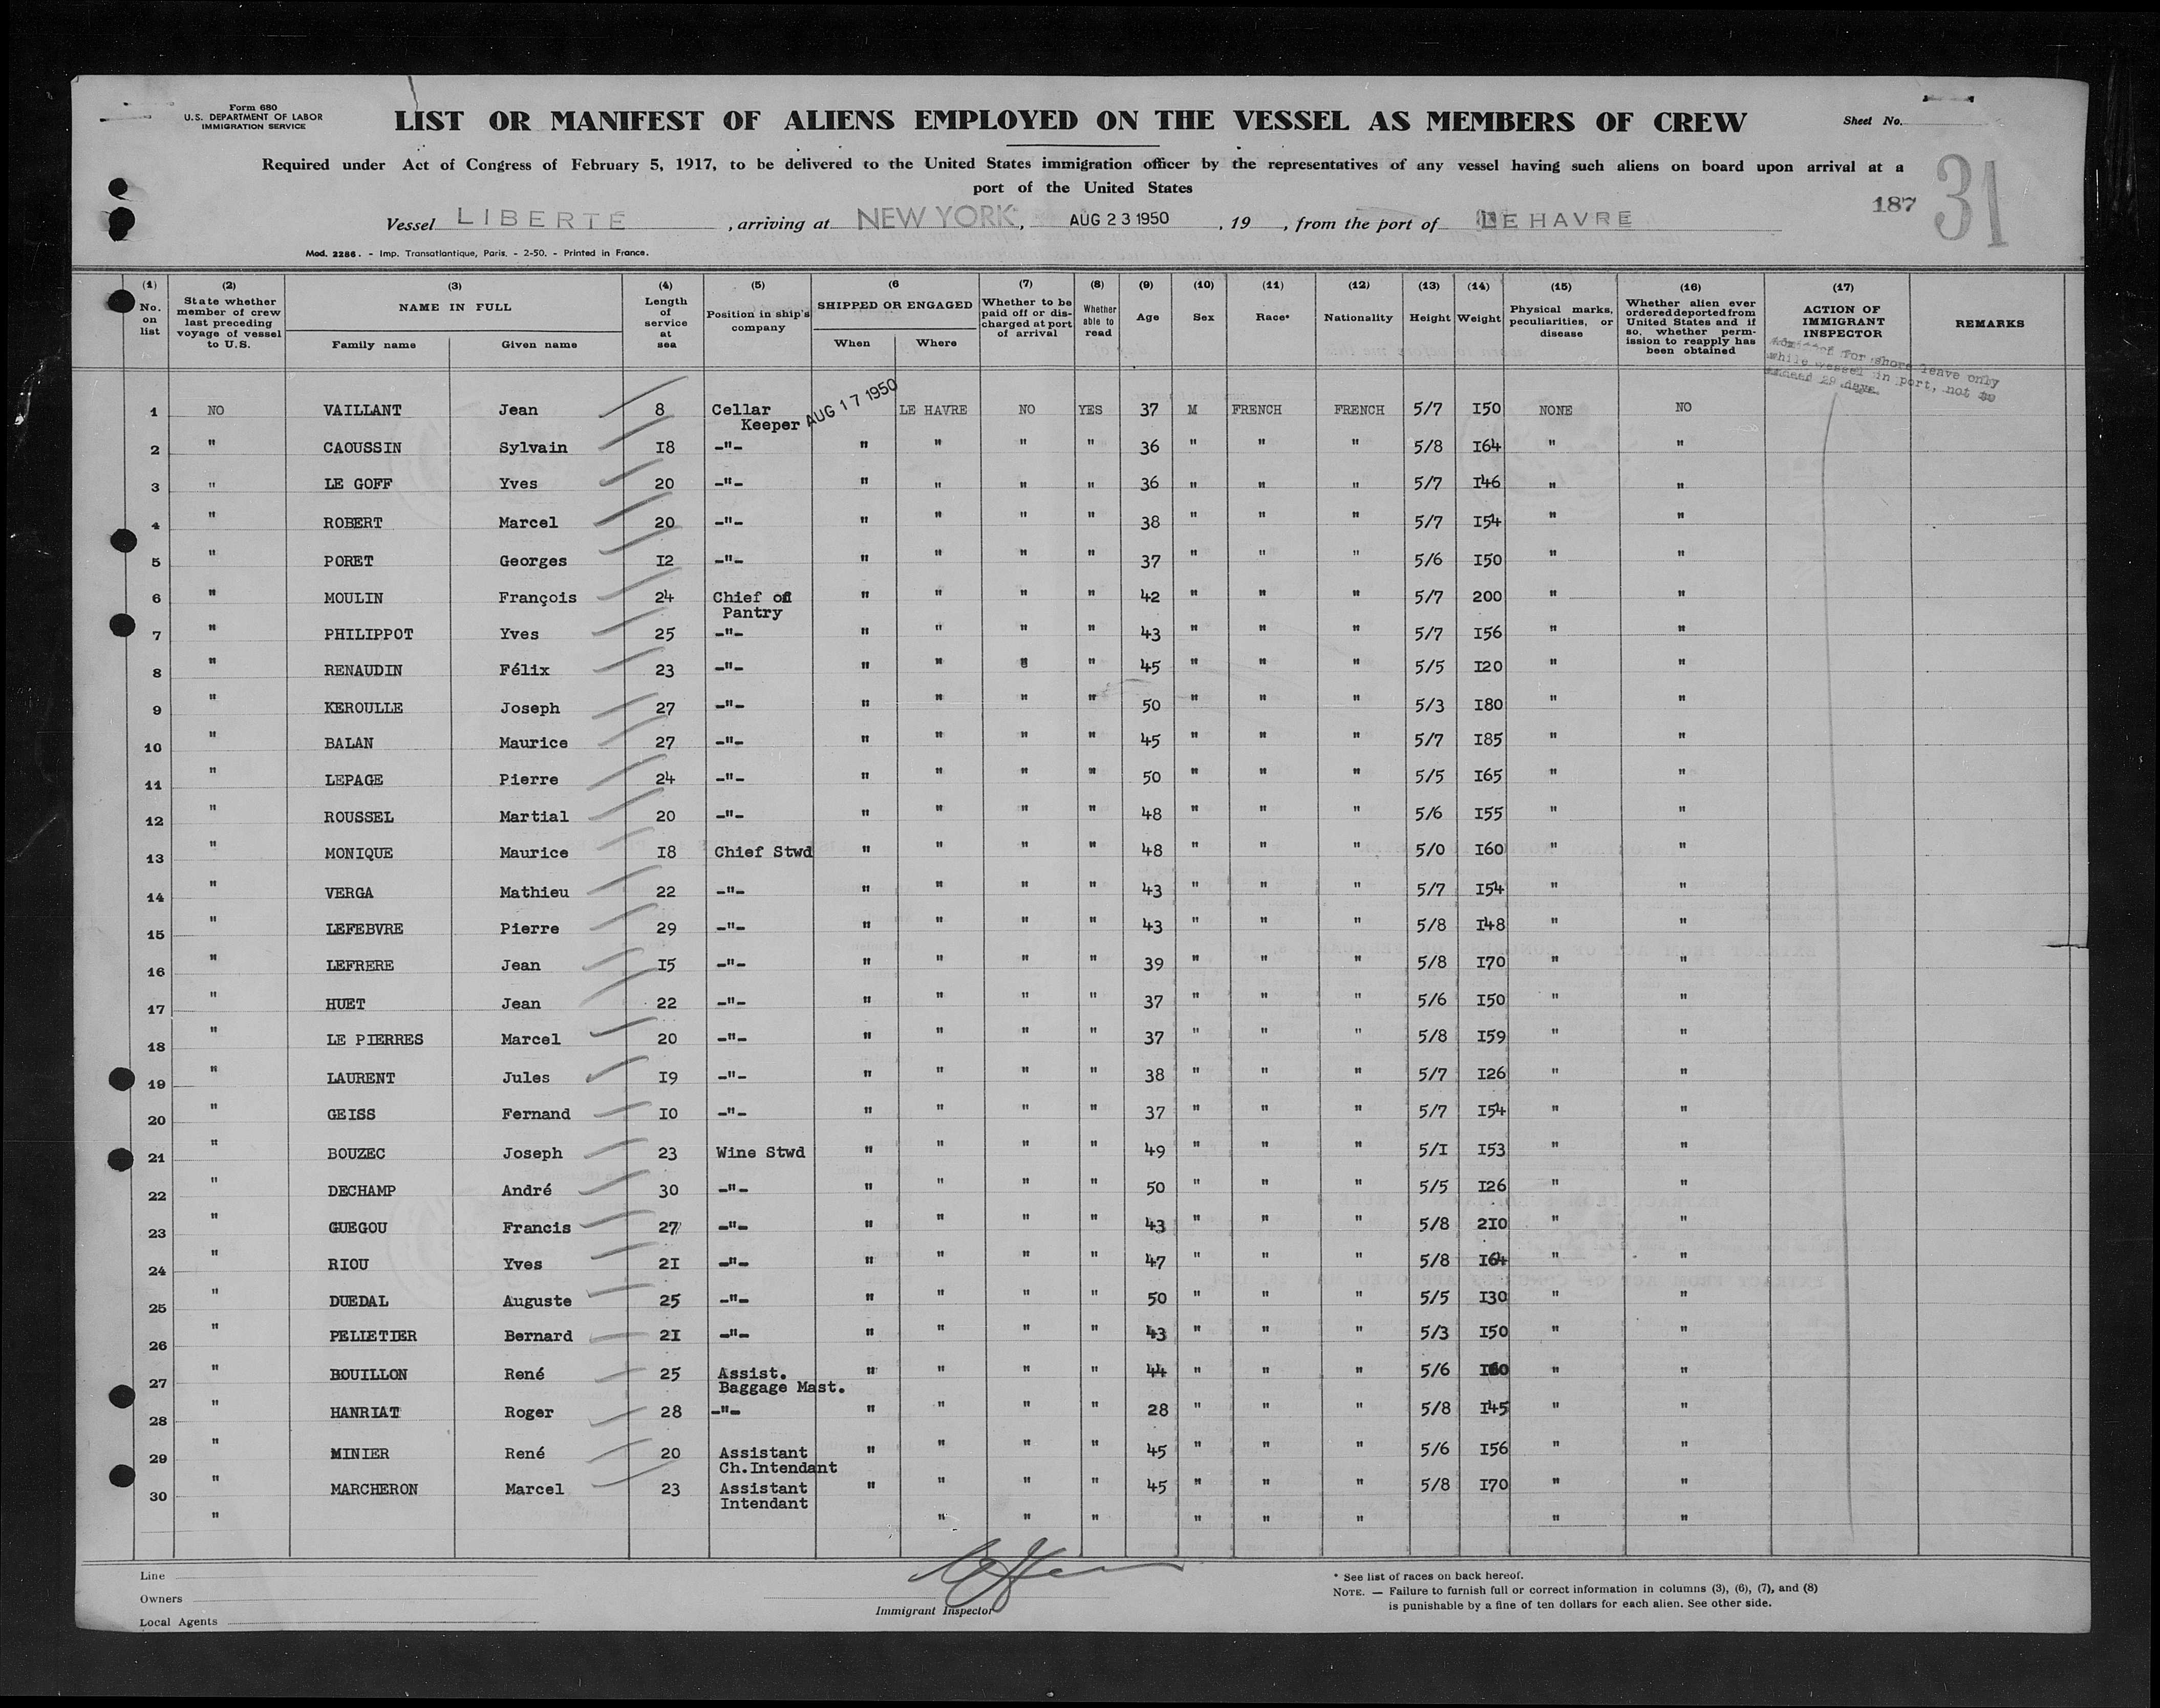 Form 680
U.S. DEPARTMENT OF LABOR
IMMIGRATION SERVICE
LIST OR MANIFEST OF ALIENS EMPLOYED ON THE VESSEL AS MEMBERS OF CREW
Sheet No.
Required under Act of Congress of February 5, 1917, to be delivered to the United States immigration officer by the representatives of any vessel having such aliens on board upon arrival at a
port of the United States
187 31
Vessel LIBERTE , arriving at NEW YORK, AUG 23 1950 , 19 , from the port of LE HAVRE
Mod. 2286. - Imp. Transatlantique, Paris. - 2-50. - Printed in France.
(1) No. on list (2) State whether member of crew last preceding voyage of vessel to U.S. (3) NAME IN FULL Family name Given name (4) Length of service at sea (5) Position in ship's company (6 SHIPPED OR ENGAGED When Where (7) Whether to be paid off or discharged at port of arrival (8) Whether able to read (9) Age (10) Sex (11) Race* (12) Nationality (13) Height (14) Weight (15) Physical marks, peculiarities, or disease (16) Whether alien ever ordered deported from United States and if so, whether permission to reapply has been obtained (17) ACTION OF IMMIGRANT INSPECTOR REMARKS
Admitted for shore leave only
while vessel in port, not to
exceed 29 days
1 NO VAILLANT Jean 8 Cellar Keeper AUG 17 1950 LE HAVRE NO YES 37 M FRENCH FRENCH 5/7 I50 NONE NO
2 " CAOUSSIN Sylvain I8 -"- " " " " 36 " " " 5/8 I64 " "
3 " LE GOFF Yves 20 -"- " " " " 36 " " " 5/7 I46 " "
4 " ROBERT Marcel 20 -"- " " " " 38 " " " 5/7 I54 " "
5 " PORET Georges I2 -"- " " " " 37 " " " 5/6 I50 " "
6 " MOULIN François 24 Chief of Pantry " " " " 42 " " " 5/7 200 " "
7 " PHILIPPOT Yves 25 -"- " " " " 43 " " " 5/7 I56 " "
8 " RENAUDIN Félix 23 -"- " " " " 45 " " " 5/5 I20 " "
9 " KEROULLE Joseph 27 -"- " " " " 50 " " " 5/3 I80 " "
10 " BALAN Maurice 27 -"- " " " " 45 " " " 5/7 I85 " "
11 " LEPAGE Pierre 24 -"- " " " " 50 " " " 5/5 I65 " "
12 " ROUSSEL Martial 20 -"- " " " " 48 " " " 5/6 I55 " "
13 " MONIQUE Maurice I8 Chief Stwd " " " " 48 " " " 5/0 I60 " "
14 " VERGA Mathieu 22 -"- " " " " 43 " " " 5/7 I54 " "
15 " LEFEBVRE Pierre 29 -"- " " " " 43 " " " 5/8 I48 " "
16 " LEFRERE Jean I5 -"- " " " " 39 " " " 5/8 I70 " "
17 " HUET Jean 22 -"- " " " " 37 " " " 5/6 I50 " "
18 " LE PIERRES Marcel 20 -"- " " " " 37 " " " 5/8 I59 " "
19 " LAURENT Jules I9 -"- " " " " 38 " " " 5/7 I26 " "
20 " GEISS Fernand I0 -"- " " " " 37 " " " 5/7 I54 " "
21 " BOUZEC Joseph 23 Wine Stwd " " " " 49 " " " 5/I I53 " "
22 " DECHAMP André 30 -"- " " " " 50 " " " 5/5 I26 " "
23 " GUEGOU Francis 27 -"- " " " " 43 " " " 5/8 2I0 " "
24 " RIOU Yves 2I -"- " " " " 47 " " " 5/8 I64 " "
25 " DUEDAL Auguste 25 -"- " " " " 50 " " " 5/5 I30 " "
26 " PELIETIER Bernard 2I -"- " " " " 43 " " " 5/3 I50 " "
27 " BOUILLON René 25 Assist. Baggage Mast. " " " " 44 " " " 5/6 I60 " "
28 " HANRIAT Roger 28 -"- " " " " 28 " " " 5/8 I45 " "
29 " MINIER René 20 Assistant Ch.Intendant " " " " 45 " " " 5/6 I56 " "
30 " MARCHERON Marcel 23 Assistant Intendant " " " " 45 " " " 5/8 I70 " "
" " " " " " " " "
Line
Owners
Local Agents
Immigrant Inspector
* See list of races on back hereof.
NOTE. — Failure to furnish full or correct information in columns (3), (6), (7), and (8)
is punishable by a fine of ten dollars for each alien. See other side.